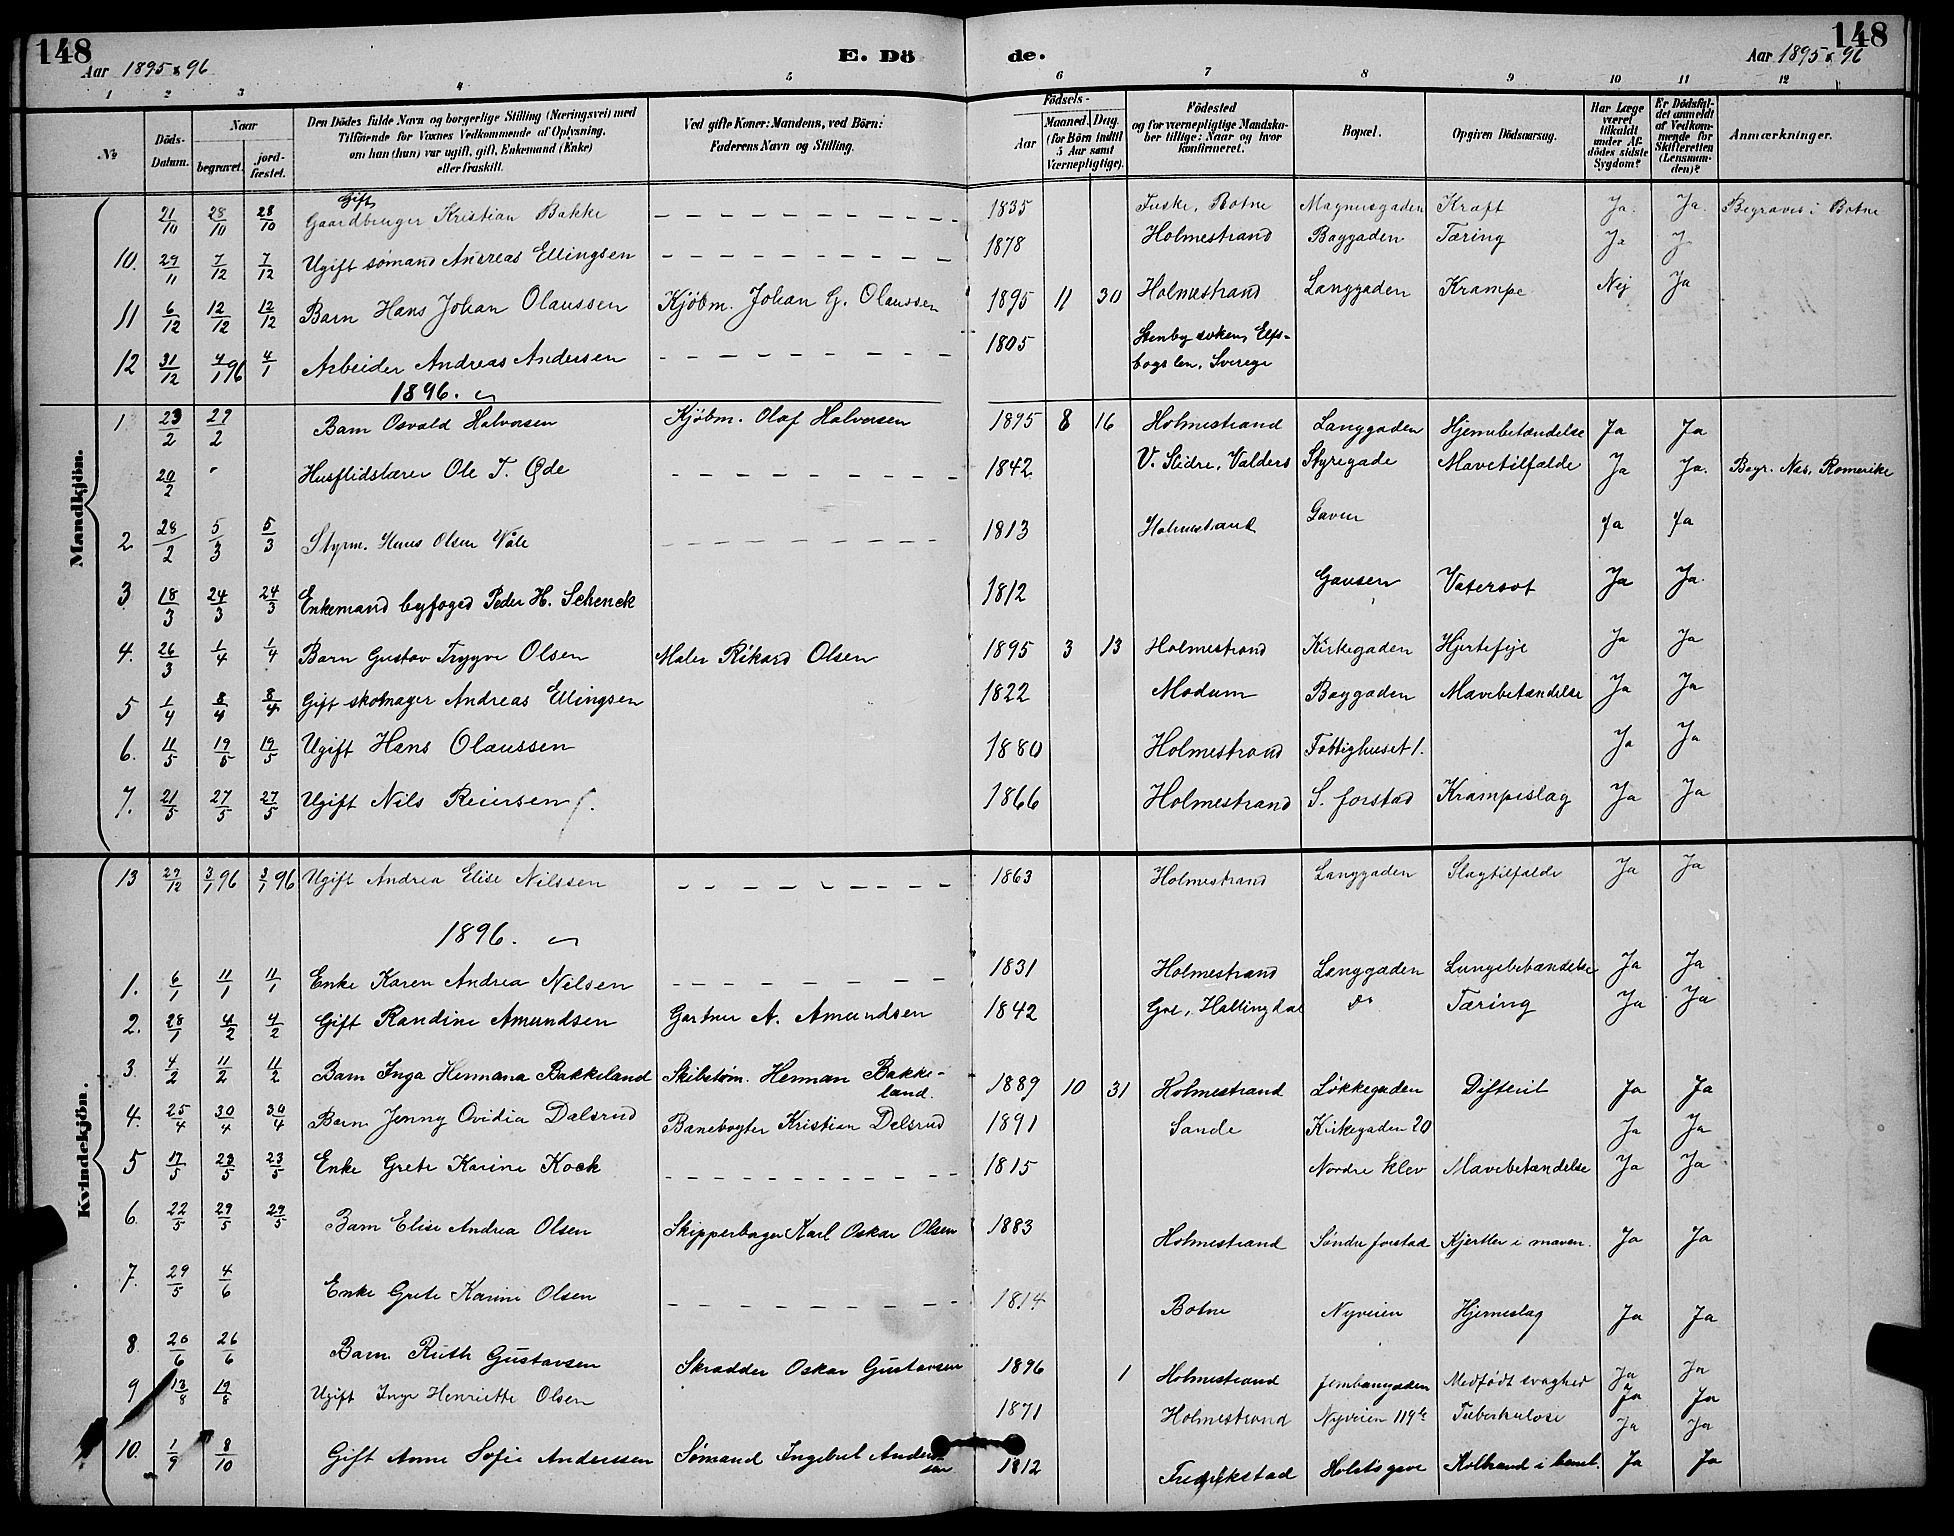 148
Aar 1895 & 96
E. Dö
de.
148
Aar 1895 & 96
1 2 3 4 5 6 7 8 9 10 11 12
No
Döds-Datum.
Naar
begravet.
jordfæstet.
Den Dödes fulde Navn og borgerlige Stilling (Næringsvei) med
Tilföiende for Voxnes Vedkommende af Oplysning,
om han (hun) var ugift, gift, Enkemand (Enke)
eller fraskilt.
Ved gifte Koner: Mandens, ved Börn:
Faderens Navn og Stilling.
Födsels-
Aar
Maaned. Dag.
(for Börn indtil
5 Aar samt
Værnepligtige).
Födested
og for værnepligtige Mandska-
ber tillige: Naar og hvor
konfirmeret.
Bopæl.
Opgiven Dödsaarsag.
Har Læge
været
tilkaldt
under Af-
dödes sidste
Sygdom?
Er Dödsfal-
det anmeldt
af Vedkom-
mende for
Skifteretten
(Lensman-
den)?
Anmærkninger.
Mandkjön.
Gift
21/10 28/10 28/10 Gaardbruger Kristian Bakke – – – 1835 Fuske, Botne Magnusgaden Kræft Ja. Ja. Begraves i Botne
10. 29/11 7/12 7/12 Ugift sømand Andreas Ellingsen – – – 1878 Holmestrand Baggaden Tæring Ja J
11 6/12 12/12 12/12 Barn Hans Johan Olaussen Kjøbm. Johan G. Olaussen 1895 11 30 Holmestrand Langgaden Krampe Nej Ja
12 31/12 4/1 96 4/1 Arbeider Andreas Andersen – – – 1805 Stenby soken, Elfs-
bogs len, Sverige
1896.
1 23/2 29/2 Barn Osvald Halvorsen Kjøbm. Olaf Halvorsen 1895 8 16 Holmestrand Langgaden Hjernebetændelse Ja Ja
20/2 Husflidslærer Ole T. Øde – – – 1842 V. Slidre, Valders Styregade Mavetilfælde Ja Ja. Begr. Nes, Romerike
2 28/2 5/3 5/3 Styrm. Hans Olsen Våle – – – 1813 Holmestrand Gaven Ja Ja
3 18/3 24/3 24/3 Enkemand byfoged Peder H. Schenck 1812 Gausen Vatersot Ja Ja.
4. 26/3 1/4 1/4 Barn Gustav Trygve Olsen Maler Rikard Olsen 1895 3 13 Holmestrand Kirkegaden Hjertefejl Ja Ja
5 1/4 8/4 8/4 Gift skomager Andreas Ellingsen 1822 Modum Baggaden Mavebetændelse Ja Ja
6. 11/5 19/5 19/5 Ugift Hans Olaussen 1880 Holmestrand Fattighuset 1. Ja Ja
7. 21/5 27/5 27/5 Ugift Nils Reiersen 1866 Holmestrand S. forstad Krampeslag Ja Ja
Kvindekjön.
13 29/12 3/1 96 3/1 96 Ugift Andrea Elise Nilssen – – – 1863 Holmestrand Langgaden Slagtilfælde Ja Ja
1896.
1. 6/1 11/1 11/1 Enke Karen Andrea Nilsen – – – 1831 Holmestrand Langgaden Lungebetændelse Ja Ja
2. 28/1 4/2 4/2 Gift Randine Amundsen Gartner A. Amundsen 1842 Gol, Hallingdal do Tæring Ja Ja
3. 4/2 11/2 11/2 Barn Inga Hermana Bakkeland Skibstøm. Herman Bakke-
land. 1889 10 31 Holmestrand Løkkegaden Difterit Ja Ja
4. 25/4 30/4 30/4 Barn Jenny Ovidia Dalsrud Banevogter Kristian Dalsrud 1891 Sande Kirkegaden 20 Ja Ja
5 17/5 23/5 23/5 Enke Grete Karine Kock – – – 1815 Nordre Klev Mavebetændelse Ja Ja
6. 22/5 29/5 29/5 Barn Elise Andrea Olsen Skipperborger Karl Oskar Olsen 1883 Holmestrand Søndre forstad Kjertler i maven. Ja Ja
7. 29/5 4/6 Enke Grete Karine Olsen – – – 1814 Botne Nyveien Hjerneslag Ja Ja
8. 20/6 26/6 Barn Ruth Gustavsen Skrædder Oskar Gustavsen 1896 1 Holmestrand Jernbangaden Medfødt svaghed Ja Ja
9 13/8 19/8 Ugift Inga Henriette Olsen 1871 Holmestrand Nyveien 119 b Tuberkulose Ja Ja
Ja Ja
10. 1/9 8/10 Gift Anne Sofie Anderssen Sømand Ingebret Anders-
sen 1812 Fredrikstad Holstsgave Kolbrand i benet. Ja Ja